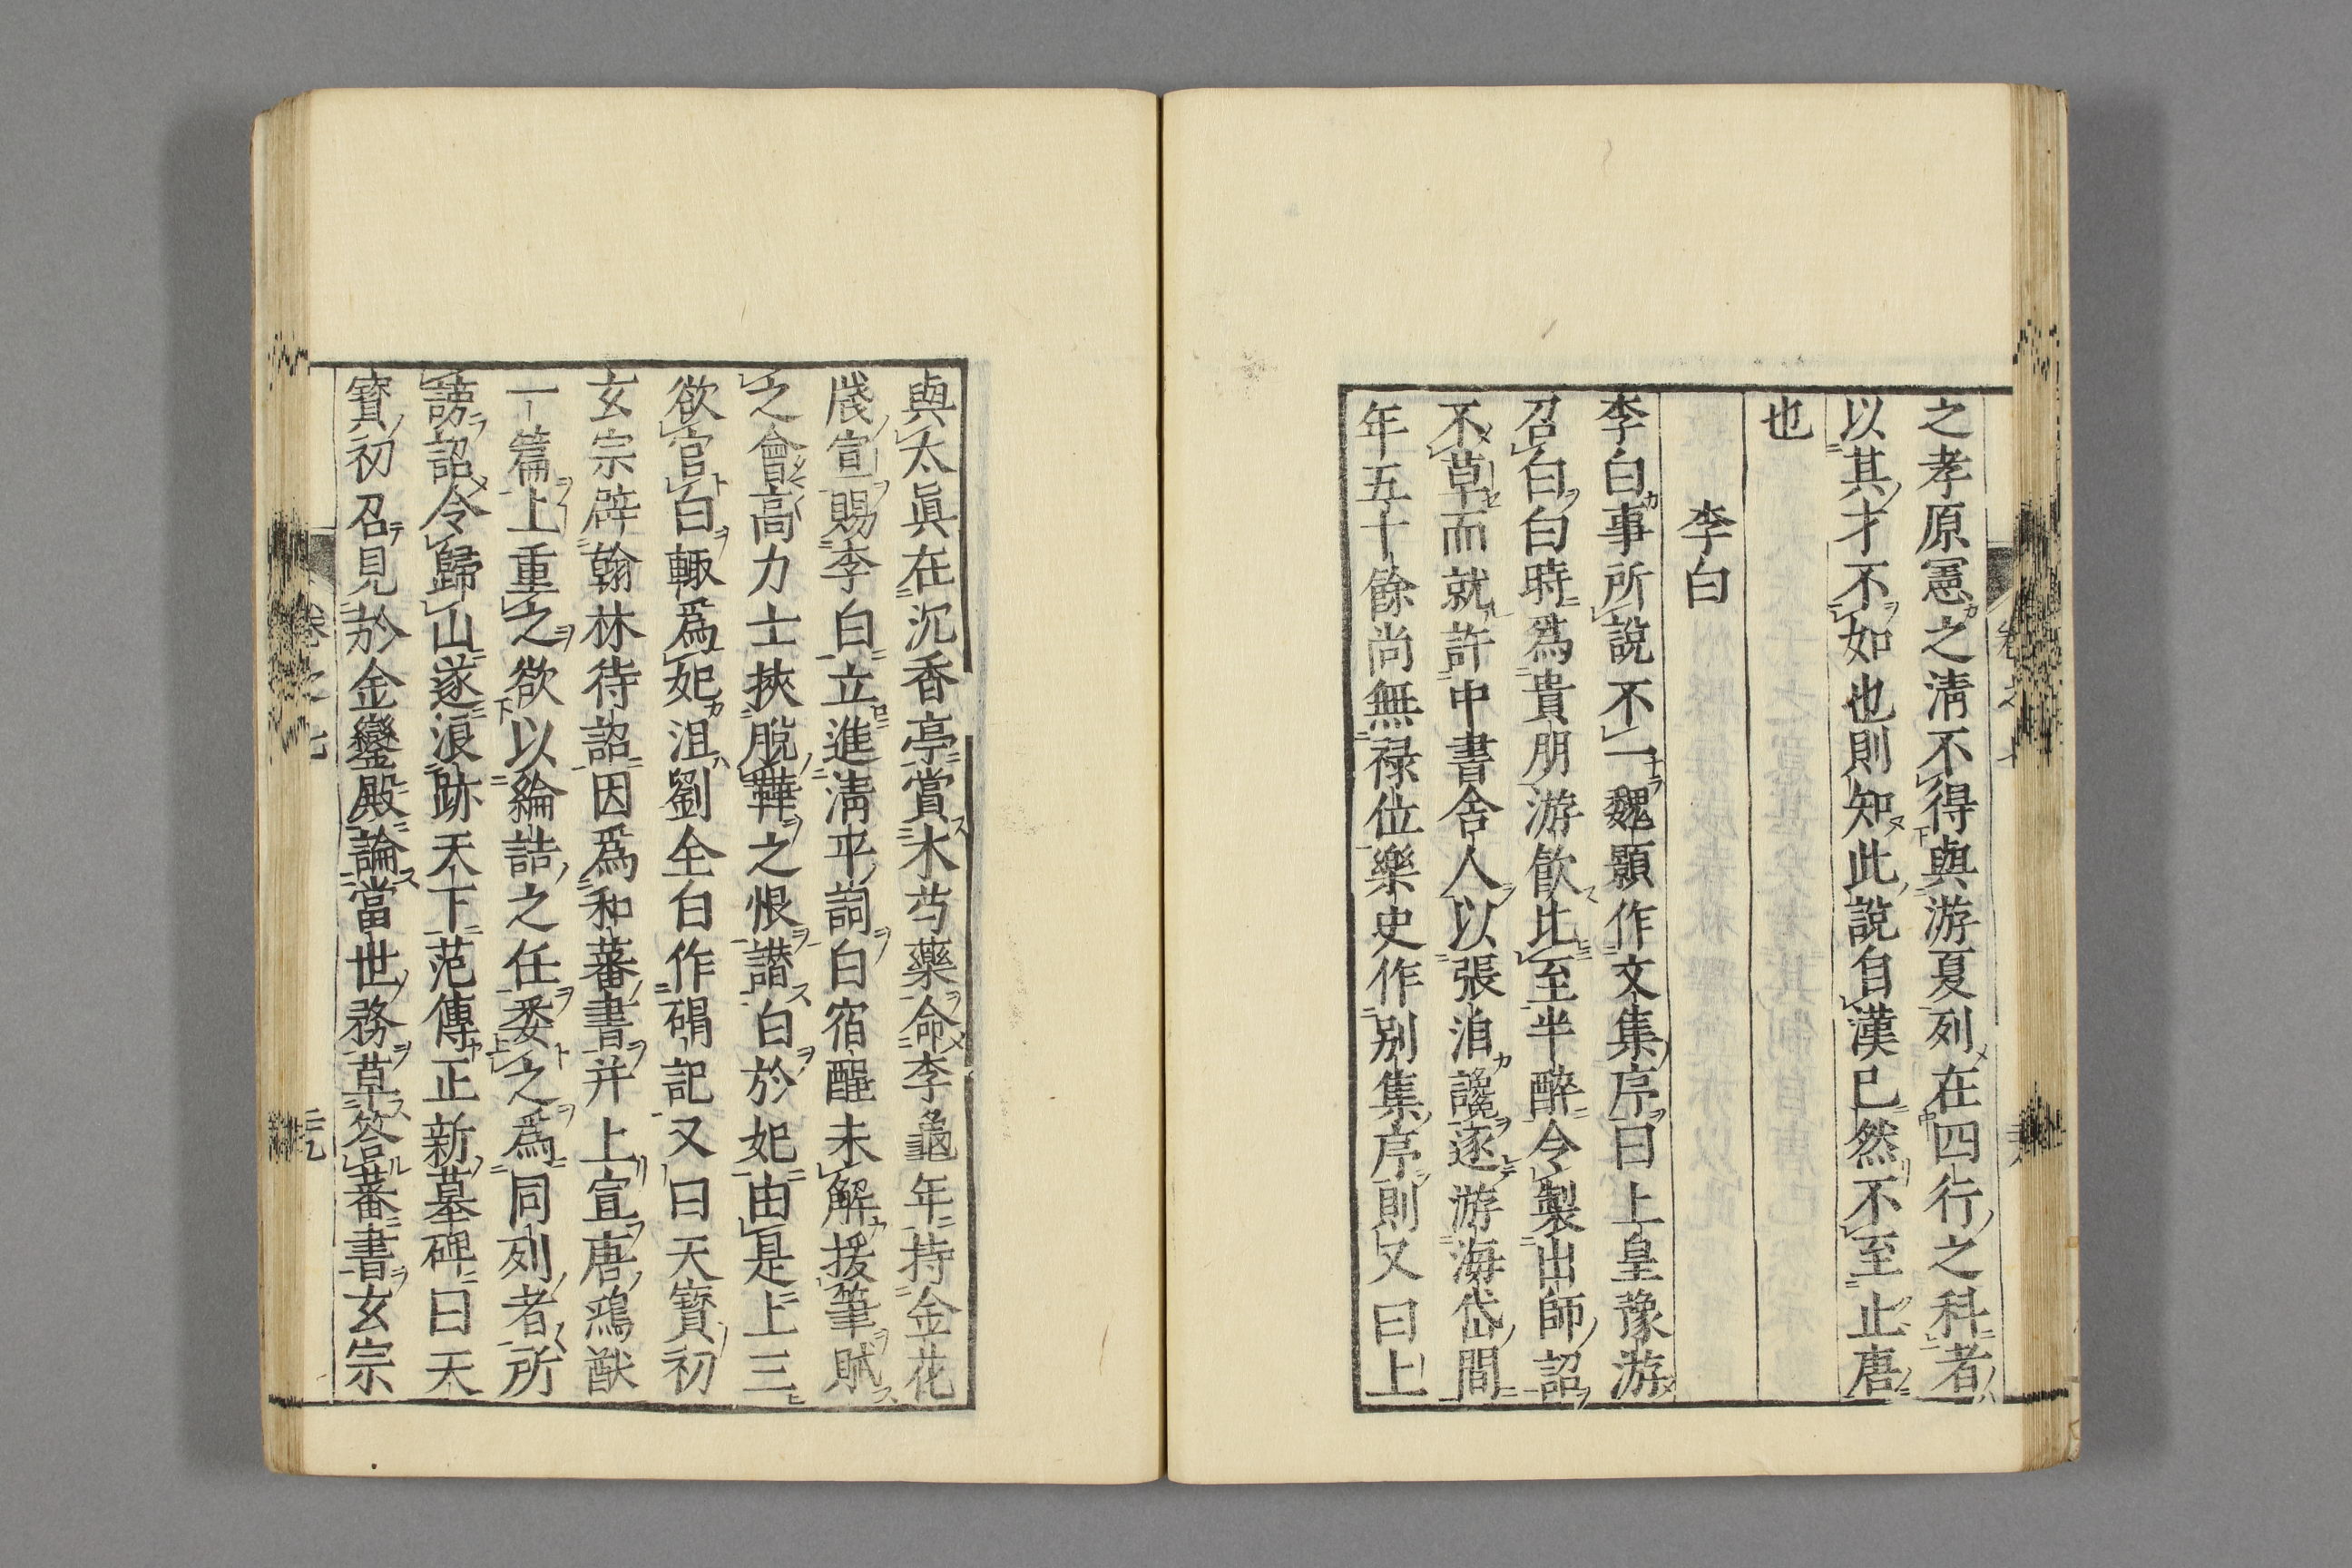 之孝原憲之清不得與游夏列在四行之科者
以其才不如也則知此說自漢已然不至止唐
也
李白
李白事所說不一魏顥作文集序曰上皇豫游
召白白時爲貴朋游飮比至半醉令製出師詔
不草而就許中書舍人以張洎讒逐游海岱間
年五十餘尚無祿位樂史作別集序則又曰上
與太眞在沉香亭賞木芍藥命李龜年持金花
牋宣賜李白立進清平詞白宿酲未解援筆賦
之會高力士挾脫鞾之恨譖白於妃由是上三
欲官白輙爲妃沮劉全白作碣記又曰天寳初
玄宗辟翰林待詔因爲和蕃書并上宣唐鴻猷
一篇上重之欲以綸誥之任委之爲同列者所
謗詔令歸山遂浪跡天下范傳正新墓碑曰天
寳初召見於金鑾殿論當世務草答蕃書玄宗
卷之七